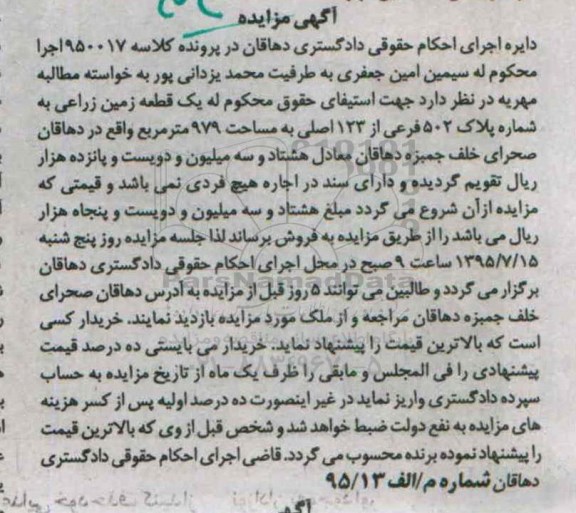 آگهی مزایده
دایره اجرای احکام حقوقی دادگستری دهاقان در پرونده کلاسه ۹۵۰۰۱۷اجرا
محکوم له سیمین امین جعفری به طرفیت محمد یزدانی پور به خواسته مطالبه
مهریه در نظر دارد جهت استیفای حقوق محکوم له یک قطعه زمین زراعی به
شماره پلاک ۵۰۲فرعی از ۱۲۳اصلی به مساحت ۹۷۹مترمربع واقع در دهاقان
صحرای خلف جمبزه دهاقان معادل هشتاد و سه میلیون و دویست و پانزده هزار
ریال تقویم گردیده و دارای سند در اجاره هیچ فردی نمی باشد و قیمتی که
مزایده ازآن شروع می گردد مبلغ هشتاد و سه میلیون و دویست و پنجاه هزار
ریال می باشد را از طریق مزایده به فروش برساند لذا جلسه مزایده روز پنج شنبه
۱۳۹۵/۷/۱۵ ساعت ۹صبح در محل اجرای احکام حقوقی دادگستری دهاقان
برگزار می گردد و طالبین می توانند ۵روز قبل از مزایده به آدرس دهاقان صحرای
خلف جمبزه دهاقان مراجعه و از ملک مورد مزایده بازدید نمایند. خریدار کسی
است که بالاترین قیمت را پیشنهاد نماید. خریدار می بایستی ده درصد قیمت
پیشنهادی را فی المجلس و مابقی را ظرف یک ماه از تاریخ مزایده به حساب
سپرده دادگستری واریز نماید در غیر اینصورت ده درصد اولیه پس از کسر هزینه
های مزایده به نفع دولت ضبط خواهد شد و شخص قبل از وی که بالاترین قیمت
را پیشنهاد نموده برنده محسوب می گردد. قاضی اجرای احکام حقوقی دادگستری
دهاقان شماره م/الف ۹۵/۱۳